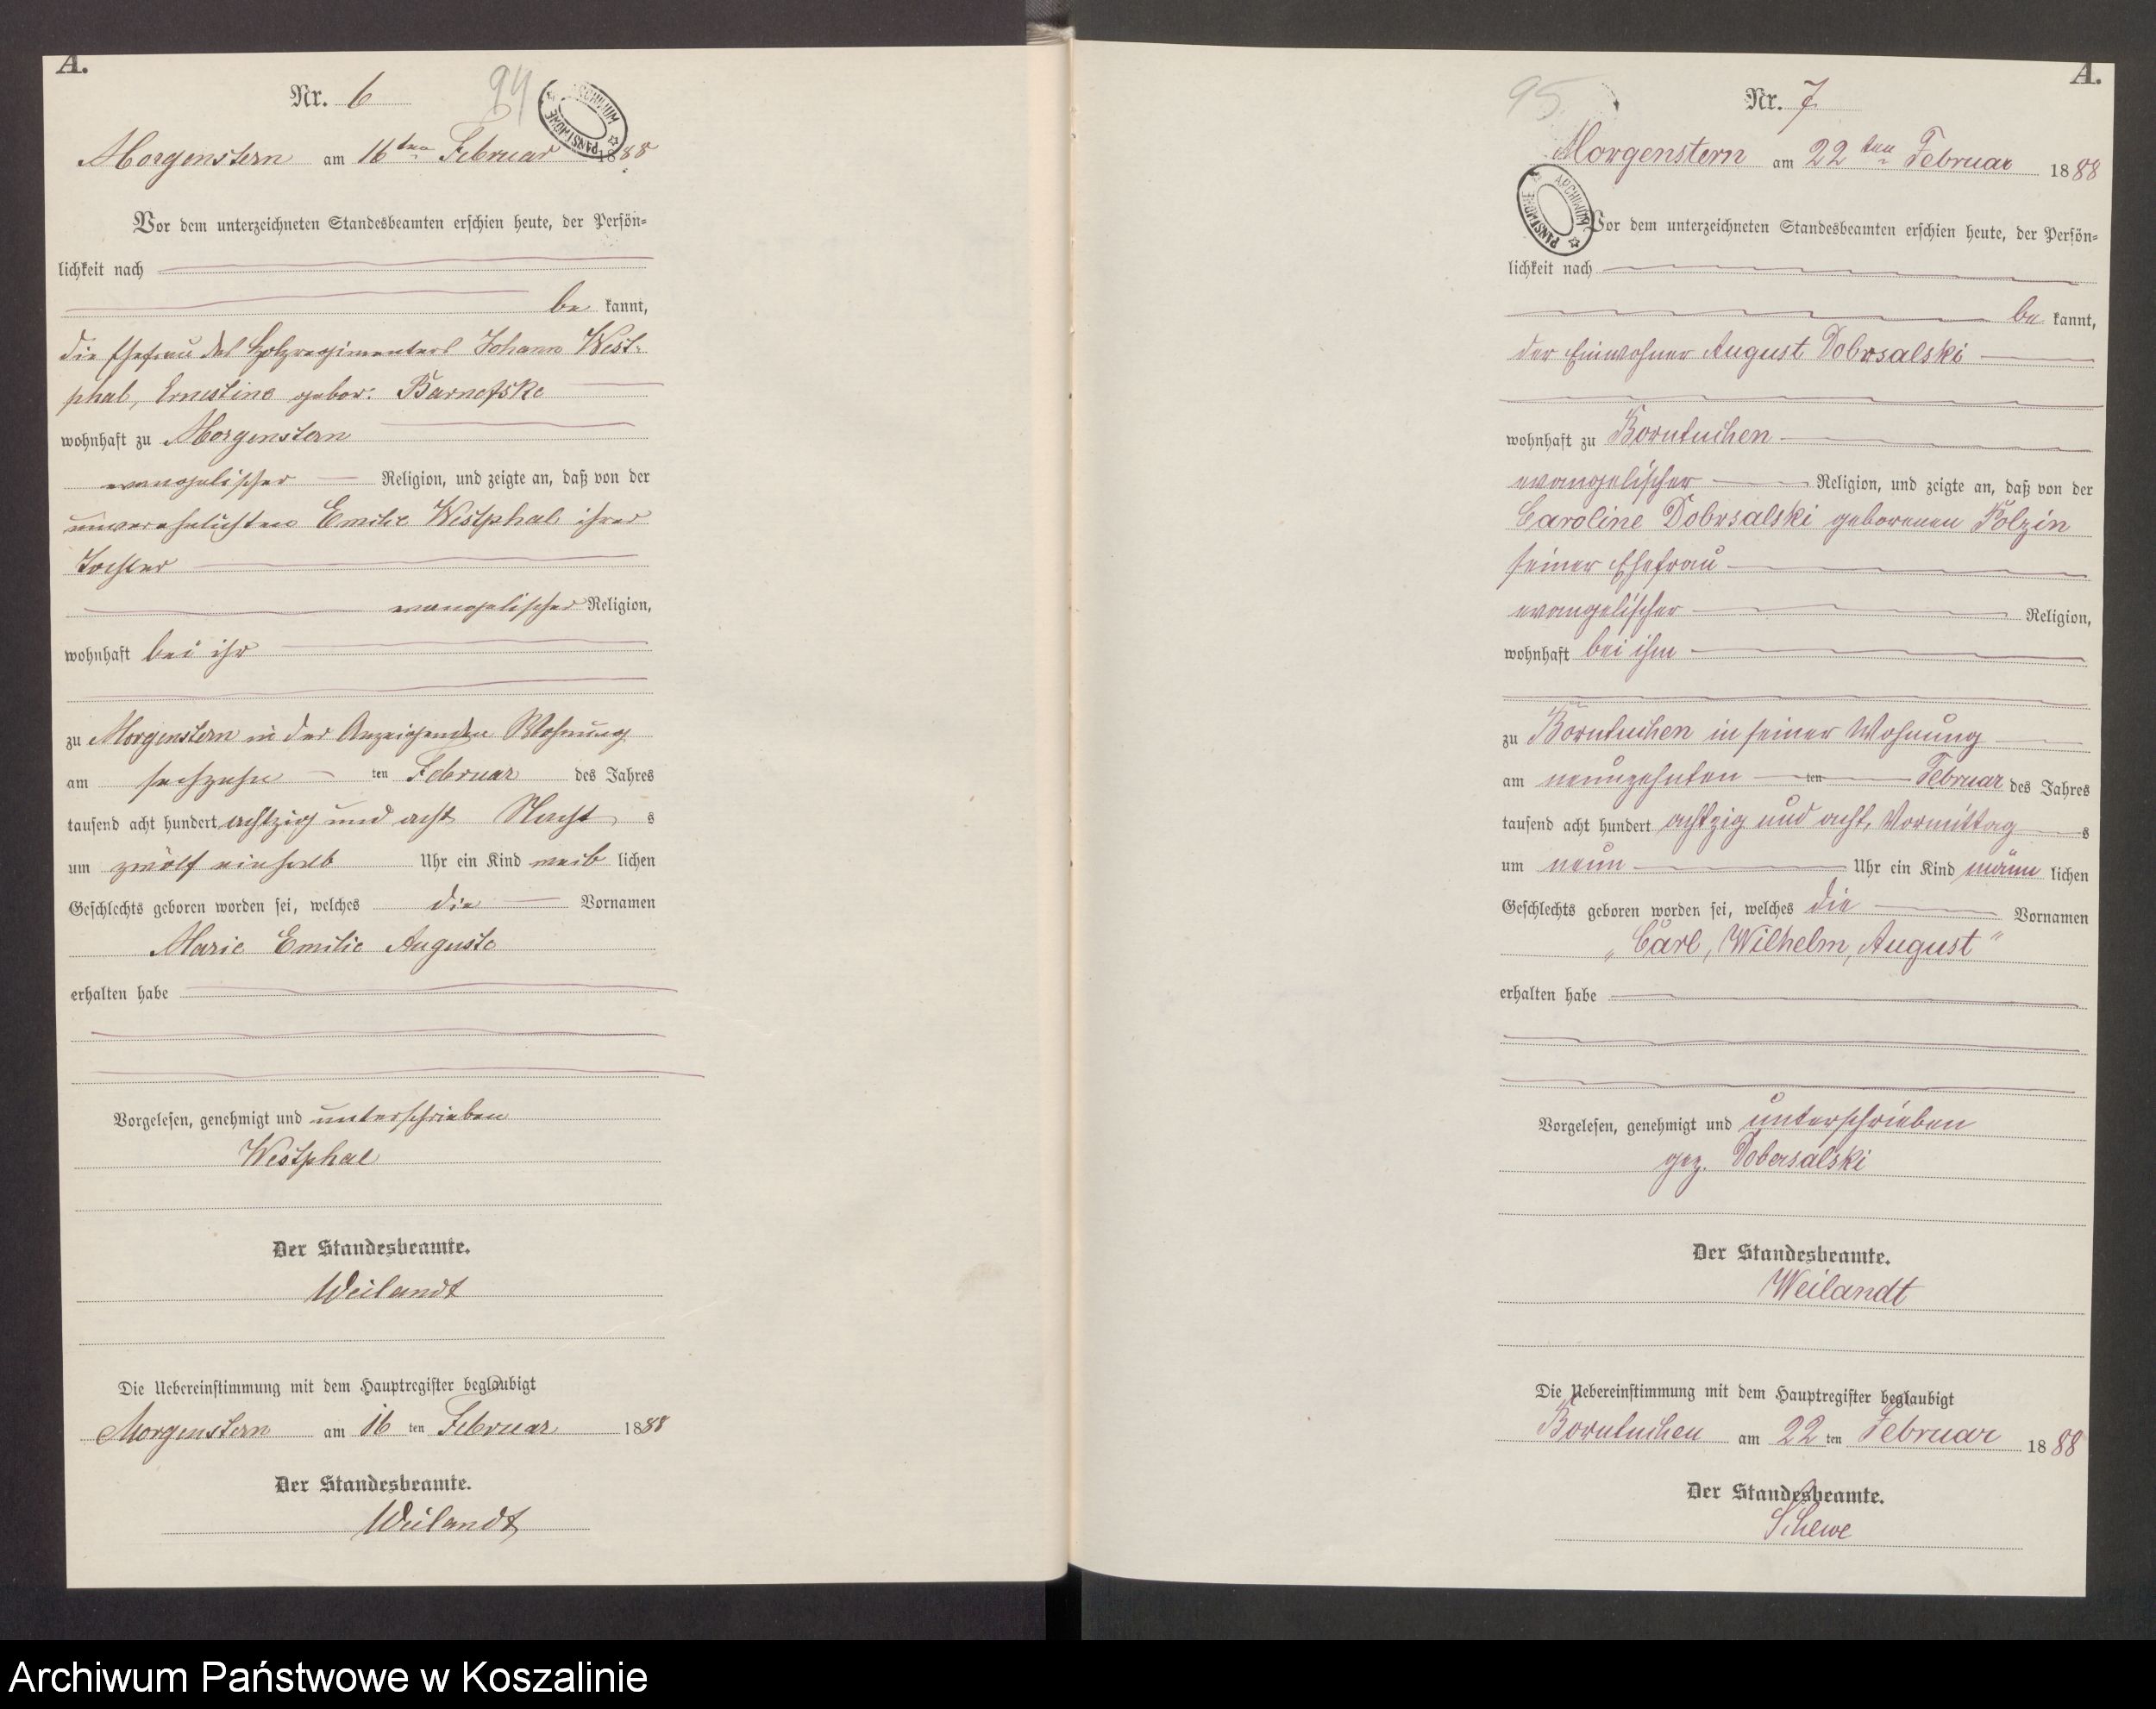 A.
Nr. 6
94
ARCHIWUM PAŃSTWOWE
Morgenstern am 16ten Februar 1888
Vor dem unterzeichneten Standesbeamten erschien heute, der Persön-
lichkeit nach
be kannt,
die Ehefrau des Johann West-
phal, Ernestine gebor:
wohnhaft zu Morgenstern
evangelischer Religion, und zeigte an, daß von der
unverehelichten Emilie Westphal ihrer
Tochter
evangelischer Religion,
wohnhaft bei ihr
zu Morgenstern in der Anzeigenden Wohnung
am sechzehn ten Februar des Jahres
tausend acht hundert achtzig und acht Nacht s
um zwölf einhalb Uhr ein Kind weib lichen
Geschlechts geboren worden sei, welches die Vornamen
Marie Emilie Auguste
erhalten habe
Vorgelesen, genehmigt und unterschrieben
Westphal
Der Standesbeamte.
Weilandt
Die Uebereinstimmung mit dem Hauptregister beglaubigt
Morgenstern am 16 ten Februar 1888
Der Standesbeamte.
Weilandt
A.
95
Nr. 7
Morgenstern am 22ten Februar 1888
ARCHIWUM PAŃSTWOWE
Vor dem unterzeichneten Standesbeamten erschien heute, der Persön-
lichkeit nach
be kannt,
der Einwohner August Dobrsalski
wohnhaft zu Borntuchen
evangelischer Religion, und zeigte an, daß von der
Caroline Dobrsalski geborenen Polzin
seiner Ehefrau
evangelischer Religion,
wohnhaft bei ihm
zu Borntuchen in seiner Wohnung
am neunzehnten ten Februar des Jahres
tausend acht hundert achtzig und acht, Vormittag s
um neun Uhr ein Kind männ lichen
Geschlechts geboren worden sei, welches die Vornamen
„Carl, Wilhelm, August“
erhalten habe
Vorgelesen, genehmigt und unterschrieben
gez. Dobersalski
Der Standesbeamte.
Weilandt
Die Uebereinstimmung mit dem Hauptregister beglaubigt
Borntuchen am 22 ten Februar 1888
Der Standesbeamte.
Schewe
Archiwum Państwowe w Koszalinie